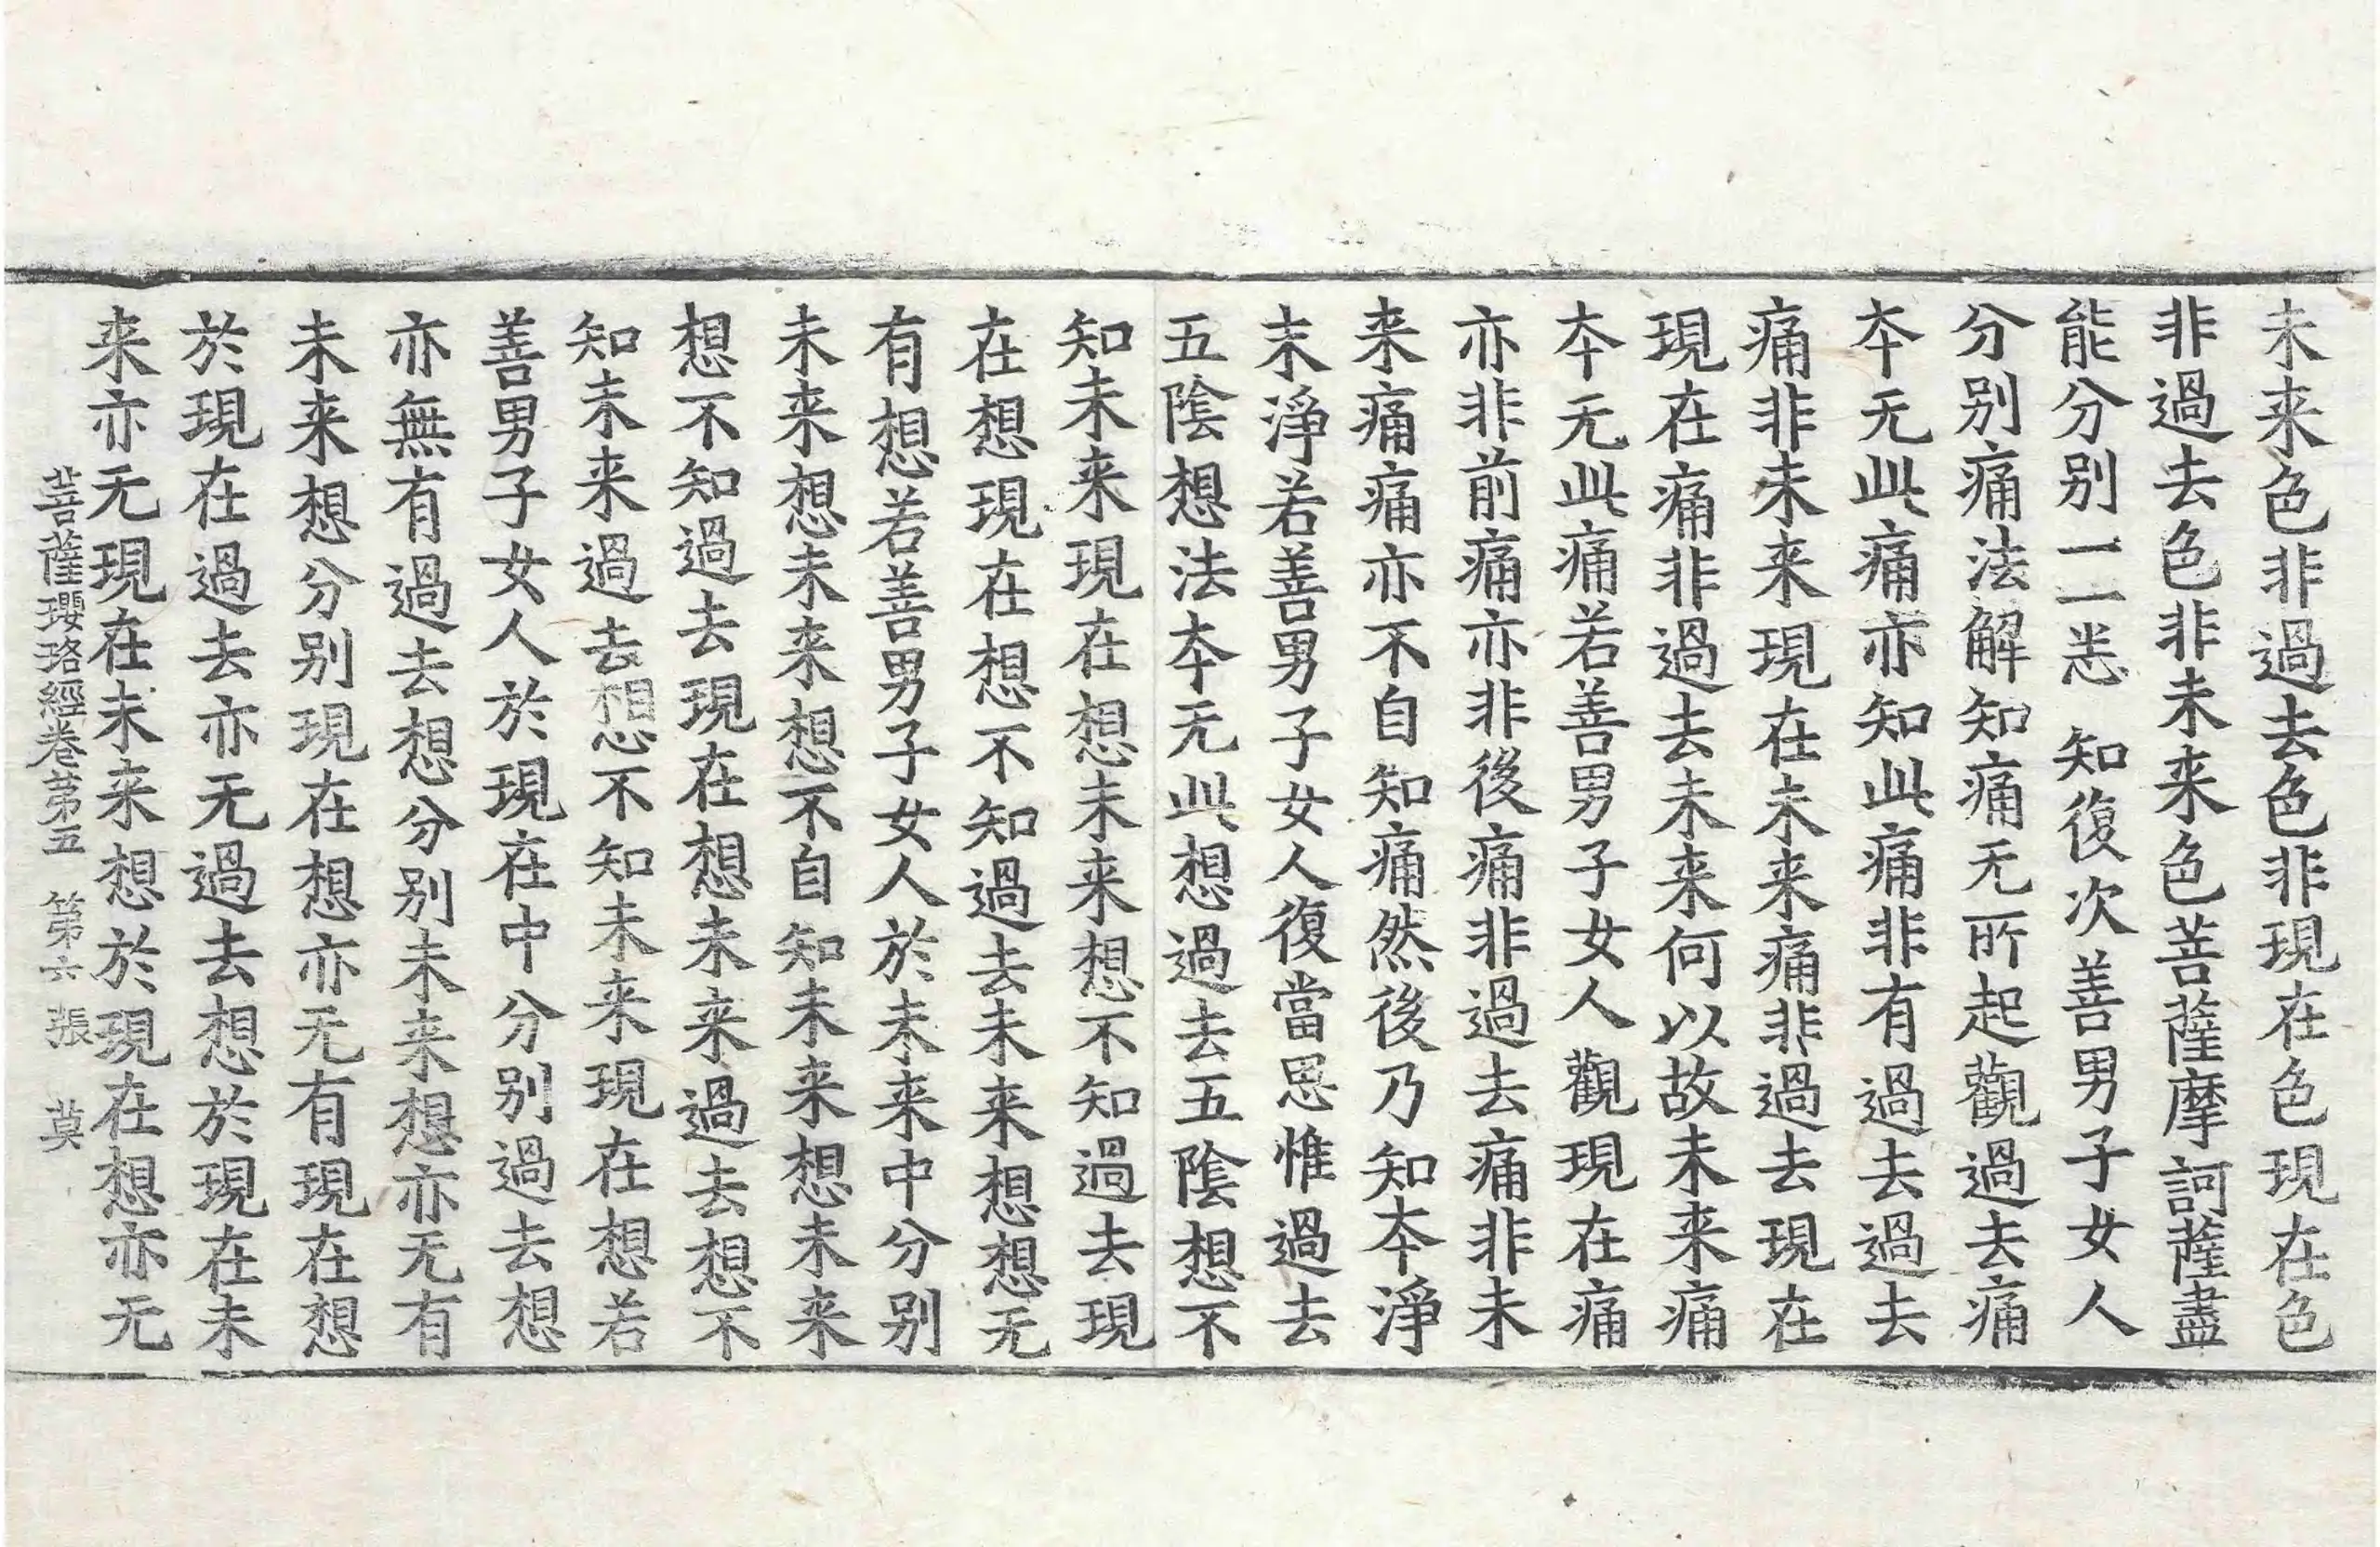 未来色非過去色非現在色現在色
非過去色非未来色菩薩摩訶薩盡
能分别一一悉知復次善男子女人
分别痛法解知痛无所起觀過去痛
夲无此痛亦知此痛非有過去過去
痛非未来現在未来痛非過去現在
現在痛非過去未来何以故未来痛
夲无此痛若善男子女人觀現在痛
亦非前痛亦非後痛非過去痛非未
来痛痛亦不自知痛然後乃知夲淨
末淨若善男子女人復當思惟過去
五陰想法夲无此想過去五陰想不
知未来現在想未来想不知過去現
在想現在想不知過去未来想想无
有想若善男子女人於未来中分别
未来想未来想不自知未来想未来
想不知過去現在想未来過去想不
知未来過去想不知未来現在想若
善男子女人於現在中分别過去想
亦無有過去想分别未来想亦无有
未来想分别現在想亦无有現在想
於現在過去亦无過去想於現在未
来亦无現在未来想於現在想亦无
菩薩瓔珞經卷第五　第六張　莫